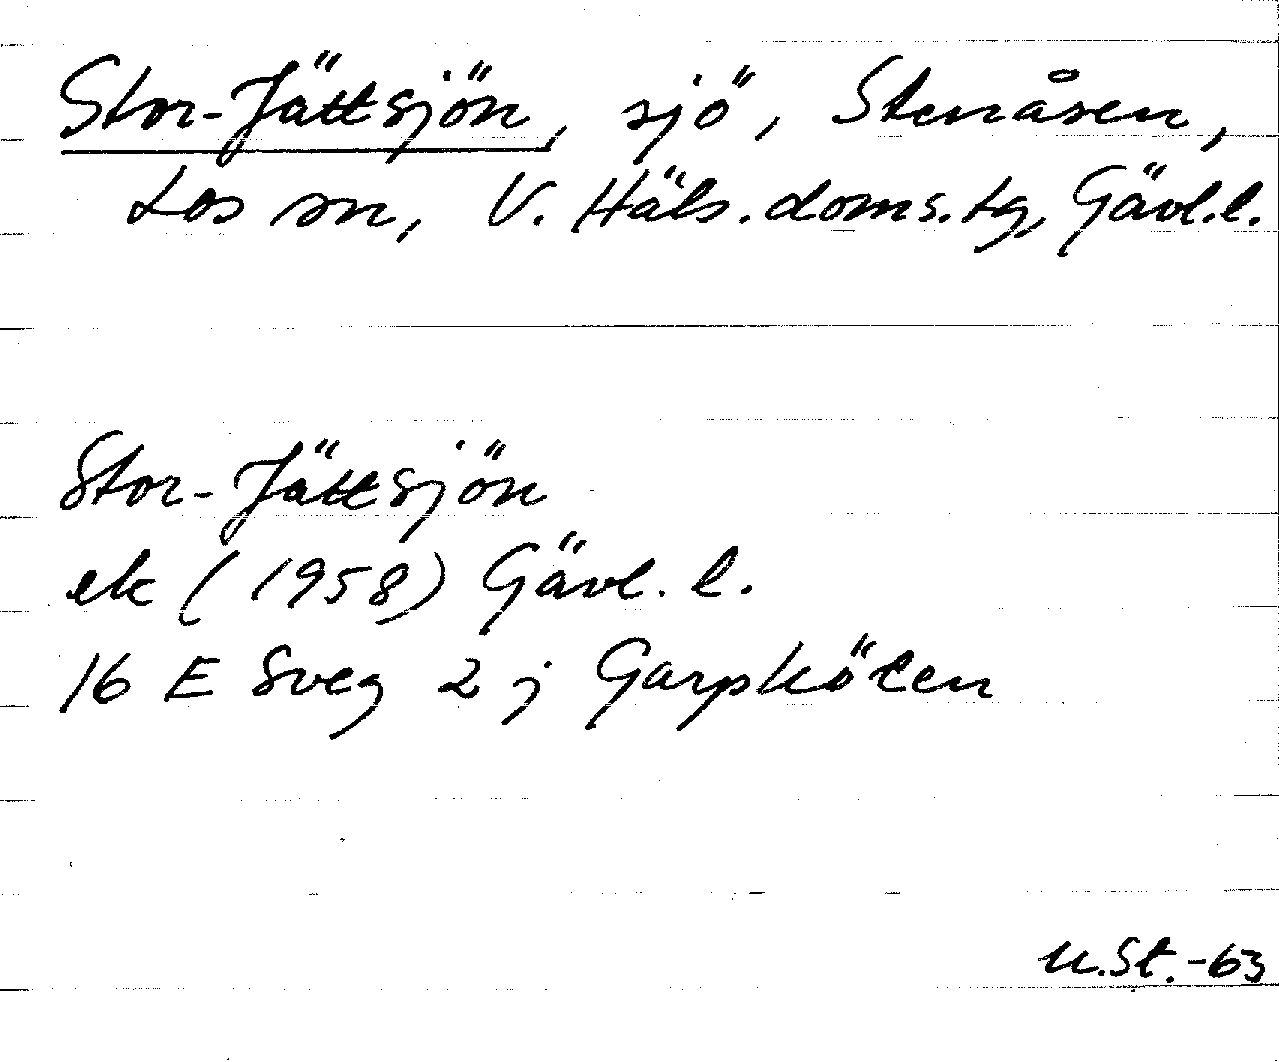 Stor-Jättsjön, sjö, Stenåsen,
Los sn, V. Häls. doms. tg, Gävl.l.
Stor-Jättsjön
ek (1958) Gävl. l.
16 E Sveg 2 j Garpköten
U.St.-63